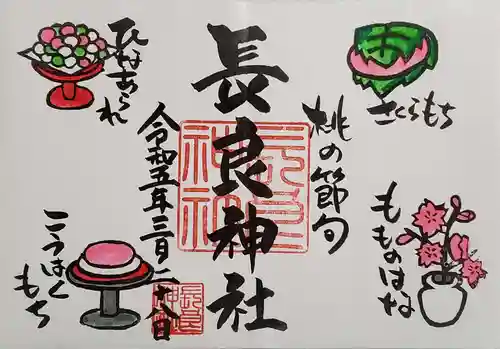 さくらもち
桃の節句
もものはな
長良神社
長良神社
令和五年三月二十八日
長良神社
ひなあられ
こうはくもち